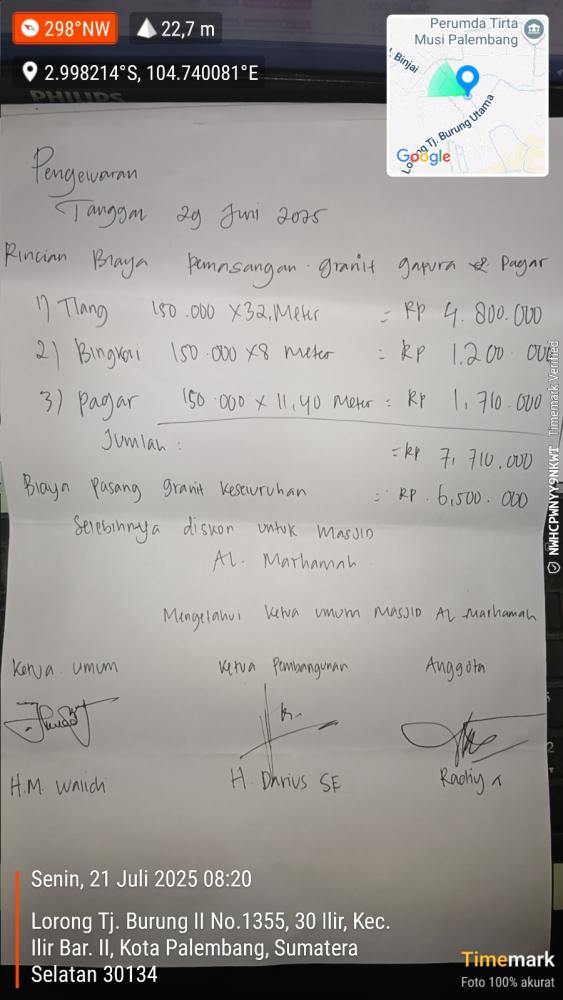 298°NW
22,7 m
2.998214°S, 104.740081°E
Perumda Tirta
Musi Palembang
Binjai
Lorong Tj. Burung Utama
Google
PHILIPS
Pengewaran
Tanggal 29 Juni 2025
Rincian Biaya Pemasangan granit gapura & Pagar
1) Tiang 150.000 X 32, Meter = RP 4.800.000
2) Bingkai 150.000 X 8 meter = RP 1.200.000
3) Pagar 150.000 X 11,40 Meter = RP 1,710.000
Jumlah : = RP 7,710,000
Biaya Pasang granit Keseluruhan : RP. 6,500.000
Selebihnya diskon untuk MASJID
AL. Marhamah
Mengetahui Ketua umum MASJID AL Marhamah
Ketua umum Ketua Pembangunan Anggota
H.M. Walidi H. Darius SE
NWHCPWNYY9NKWT Timemark Verified
Senin, 21 Juli 2025 08:20
Lorong Tj. Burung II No.1355, 30 Ilir, Kec.
Ilir Bar. II, Kota Palembang, Sumatera
Selatan 30134
Timemark
Foto 100% akurat